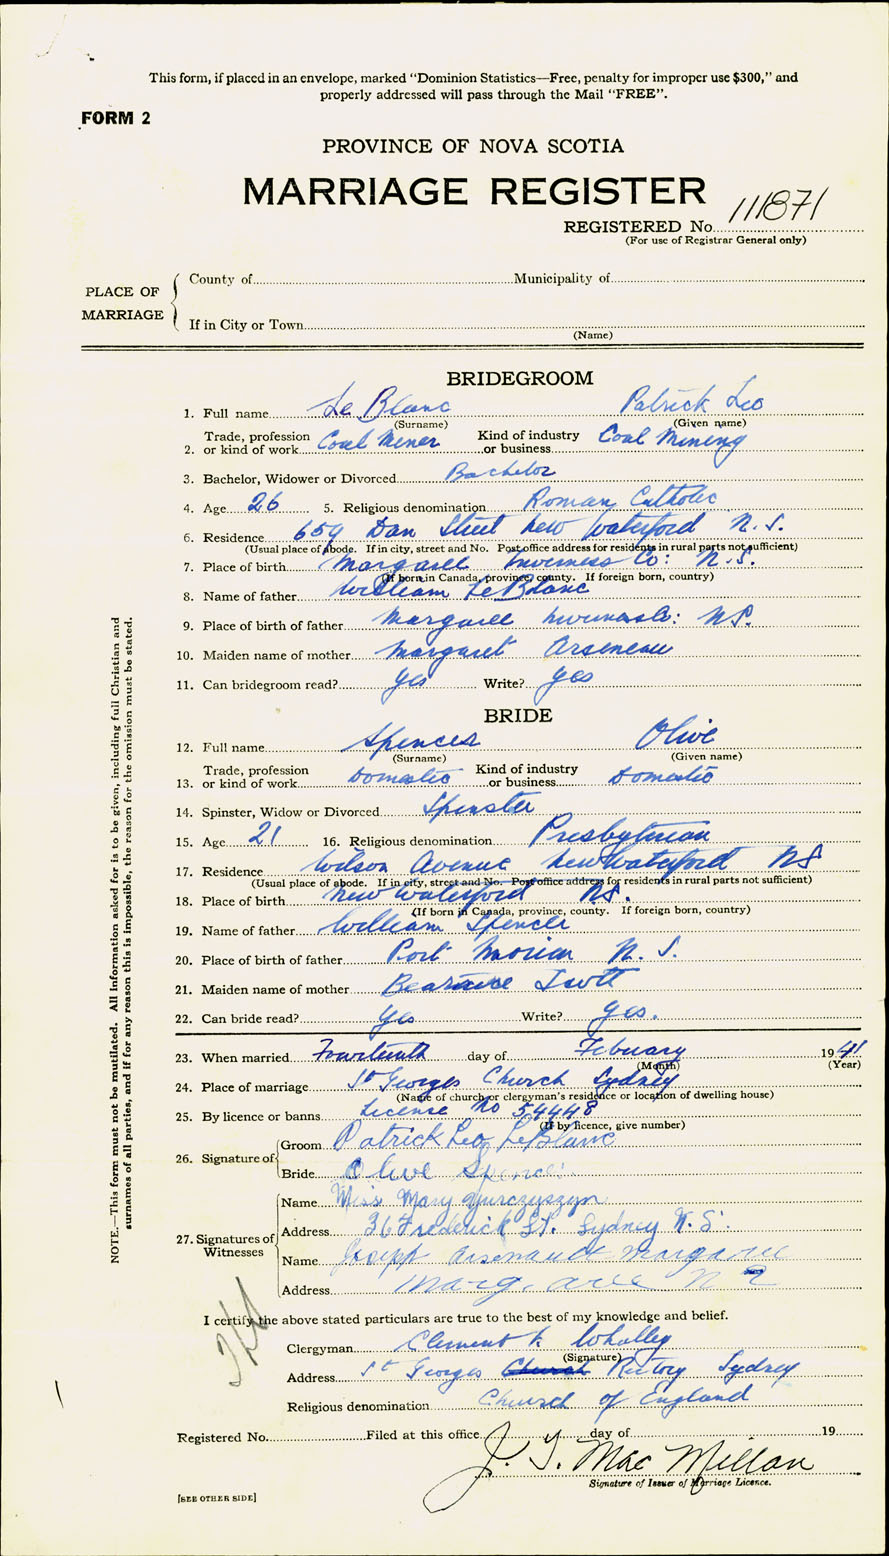 This form, if placed in an envelope, marked "Dominion Statistics—Free, penalty for improper use $300," and
properly addressed will pass through the Mail "FREE".
FORM 2
PROVINCE OF NOVA SCOTIA
MARRIAGE REGISTER
REGISTERED No. 111871
(For use of Registrar General only)
PLACE OF MARRIAGE
County of Municipality of
If in City or Town
(Name)
BRIDEGROOM
1. Full name Le Blanc Patrick Leo
(Surname) (Given name)
2. Trade, profession or kind of work Coal Miner Kind of industry or business Coal Mining
3. Bachelor, Widower or Divorced Bachelor
4. Age 26 5. Religious denomination Roman Catholic
6. Residence 659 Dan Street New Waterford N.S.
(Usual place of abode. If in city, street and No. Post office address for residents in rural parts not sufficient)
7. Place of birth Margaree Inverness Co: N.S.
(If born in Canada, province, county. If foreign born, country)
8. Name of father William LeBlanc
9. Place of birth of father Margaree NS.
10. Maiden name of mother Margaret Arseneau
11. Can bridegroom read? Yes Write? Yes
BRIDE
12. Full name Spencer Olive
(Surname) (Given name)
13. Trade, profession or kind of work Domestic Kind of industry or business Domestic
14. Spinster, Widow or Divorced Spinster
15. Age 21 16. Religious denomination Presbyterian
17. Residence Wilson Avenue New Waterford NS
(Usual place of abode. If in city, street and No. Post office address for residents in rural parts not sufficient)
18. Place of birth New Waterford NS.
(If born in Canada, province, county. If foreign born, country)
19. Name of father William Spencer
20. Place of birth of father Port Morien N.S.
21. Maiden name of mother
22. Can bride read? Yes Write? Yes.
23. When married Fourteenth day of Febuary 1941
(Month) (Year)
24. Place of marriage St Georges Church Sydney
(Name of church or clergyman's residence or location of dwelling house)
25. By licence or banns License No 54448
(If by licence, give number)
26. Signature of Groom Patrick Leo LeBlanc
Bride Olive Spencer
27. Signatures of Witnesses
Name Miss Mary
Address 36 Frederick St. Sydney N.S.
Name Joseph Arsenault Margaree
Address Margaree N S
I certify the above stated particulars are true to the best of my knowledge and belief.
Clergyman Clement Whalley
(Signature)
Address St Georges Church Rectory Sydney
Religious denomination Church of England
Registered No. Filed at this office day of 19
J. Mac Millan
Signature of Issuer of Marriage Licence.
[SEE OTHER SIDE]
NOTE.—This form must not be mutilated. All information asked for is to be given, including full Christian and
surnames of all parties, and if for any reason this is impossible, the reason for the omission must be stated.